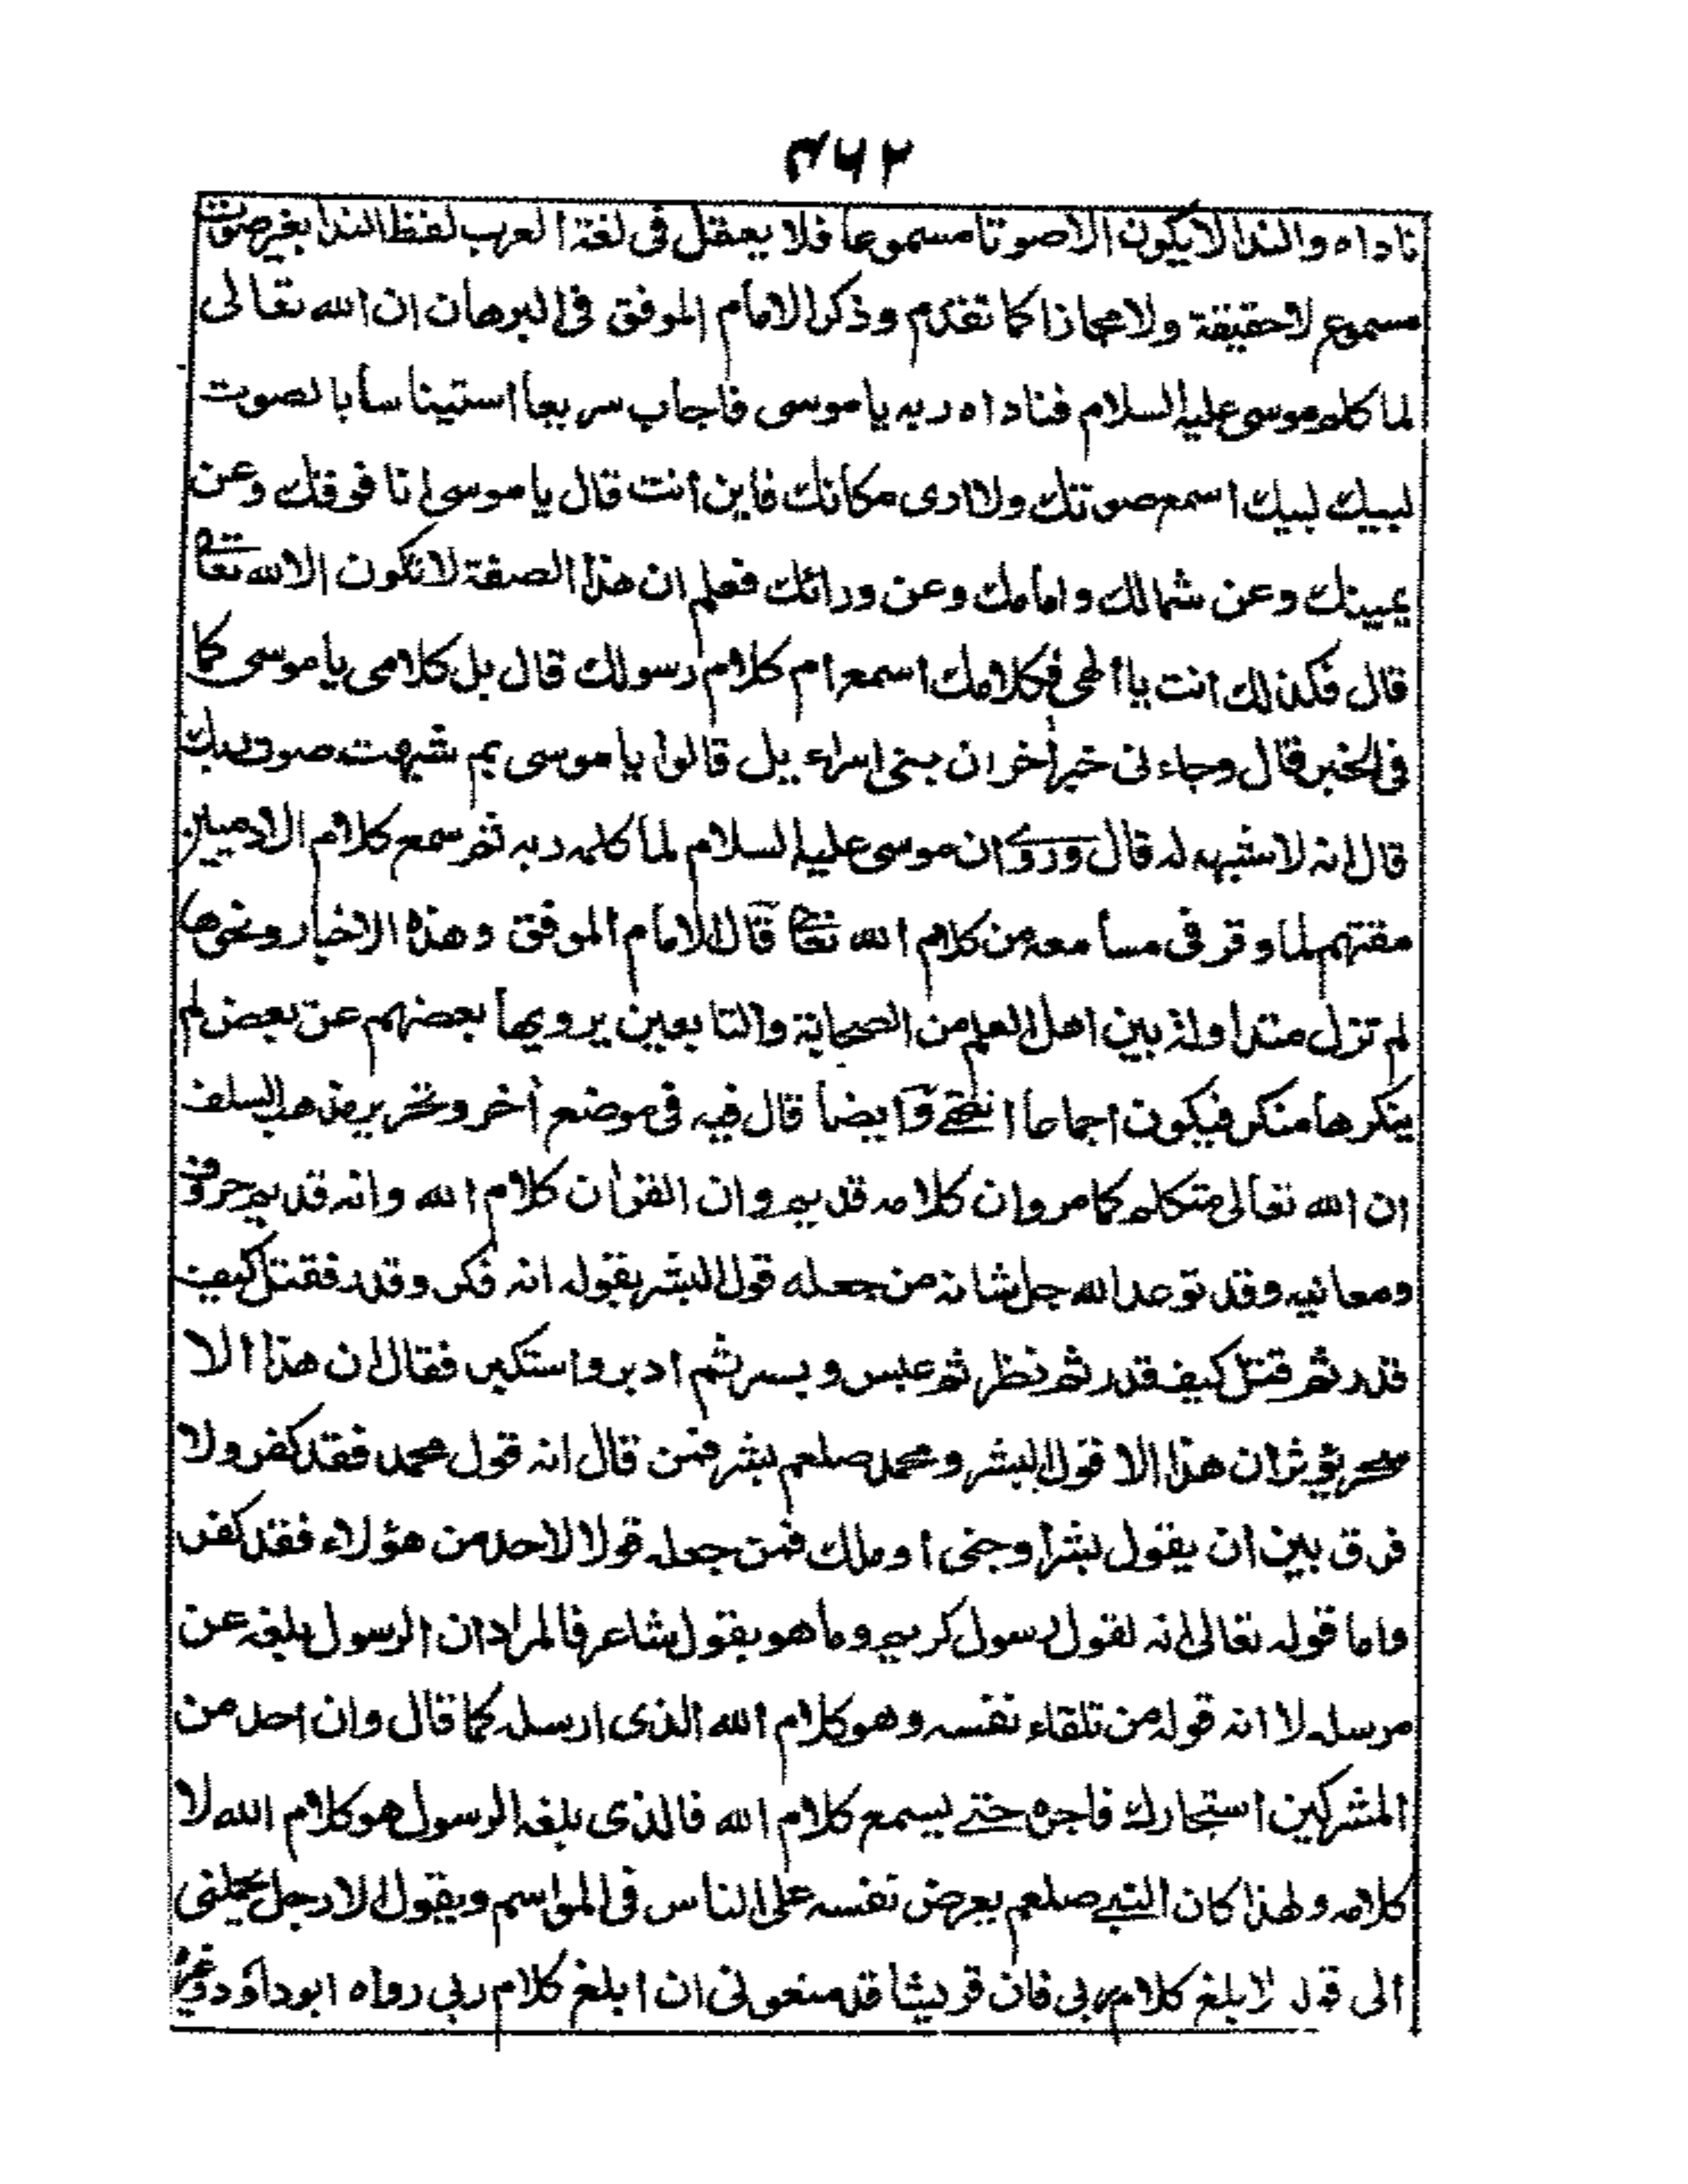 ٤٦٢
ناداه والندا لا يكون الا صوتا مسموعا فلا يعقل فى لغة العرب لفظ الندا بغير صوت
مسموع لا حقيقة ولا مجازا كما تقدم وذكر الامام الموفق فى البرهان ان الله تعالى
لما كلم موسى عليه السلام فناداه ربه يا موسى فاجاب سريعا استيناسا بالصوت
لبيك لبيك اسمع صوتك ولا ارى مكانك فاين انت قال يا موسى انا فوقك وعن
يمينك وعن شمالك وامامك وعن ورائك فعلم ان هذا الصفة لا تكون الا لله تعالى
قال فكذلك انت يا الهى فكلامك اسمع ام كلام رسولك قال بل كلامى يا موسى كما
فى الخبر قال وجاء فى خبر أخر ان بنى اسراءيل قالوا يا موسى بم شبهت صوت ربك
قال انه لا شبه له قال وروى ان موسى عليه السلام لما كلمه ربه ثم سمع كلام الادميين
مقتهم لما وقر فى مسامعه من كلام الله تعالى قال الامام الموفق وهذه الاخبار ونحوها
لم تزل متداولة بين اهل العلم من الصحابة والتابعين يرويها بعضهم عن بعض لم
ينكرها منكر فيكون اجماعا انتهى وايضا قال فيه فى موضع أخر وتحرير مذهب السلف
ان الله تعالى متكلم كما مر وان كلامه قديم وان القرأن كلام الله وانه قديم حروفه
ومعانيه وقد توعد الله جل شانه من جعله قول البشر بقوله انه فكر وقدر فقتل كيف
قدر ثم قتل كيف قدر ثم نظر ثم عبس وبسر ثم ادبر واستكبر فقال ان هذا الا
سحر يؤثر ان هذا الا قول البشر ومحمد صلعم بشر فمن قال انه قول محمد فقد كفر ولا
فرق بين ان يقول بشر او جنى او ملك فمن جعله قولا لاحد من هؤلاء فقد كفر
واما قوله تعالى انه لقول رسول كريم وما هو بقول شاعر فالمراد ان الرسول بلغه عن
مرسله لا انه قوله من تلقاء نفسه وهو كلام الله الذى ارسله كما قال وان احد من
المشركين استجارك فاجره حتى يسمع كلام الله فالذى بلغه الرسول هو كلام الله لا
كلامه ولهذا كان النبى صلعم يعرض نفسه على الناس فى المواسم ويقول الا رجل يحملنى
الى قومه لا بلغ كلام ربى فان قريشا قد منعونى ان ابلغ كلام ربى رواه ابو داؤد